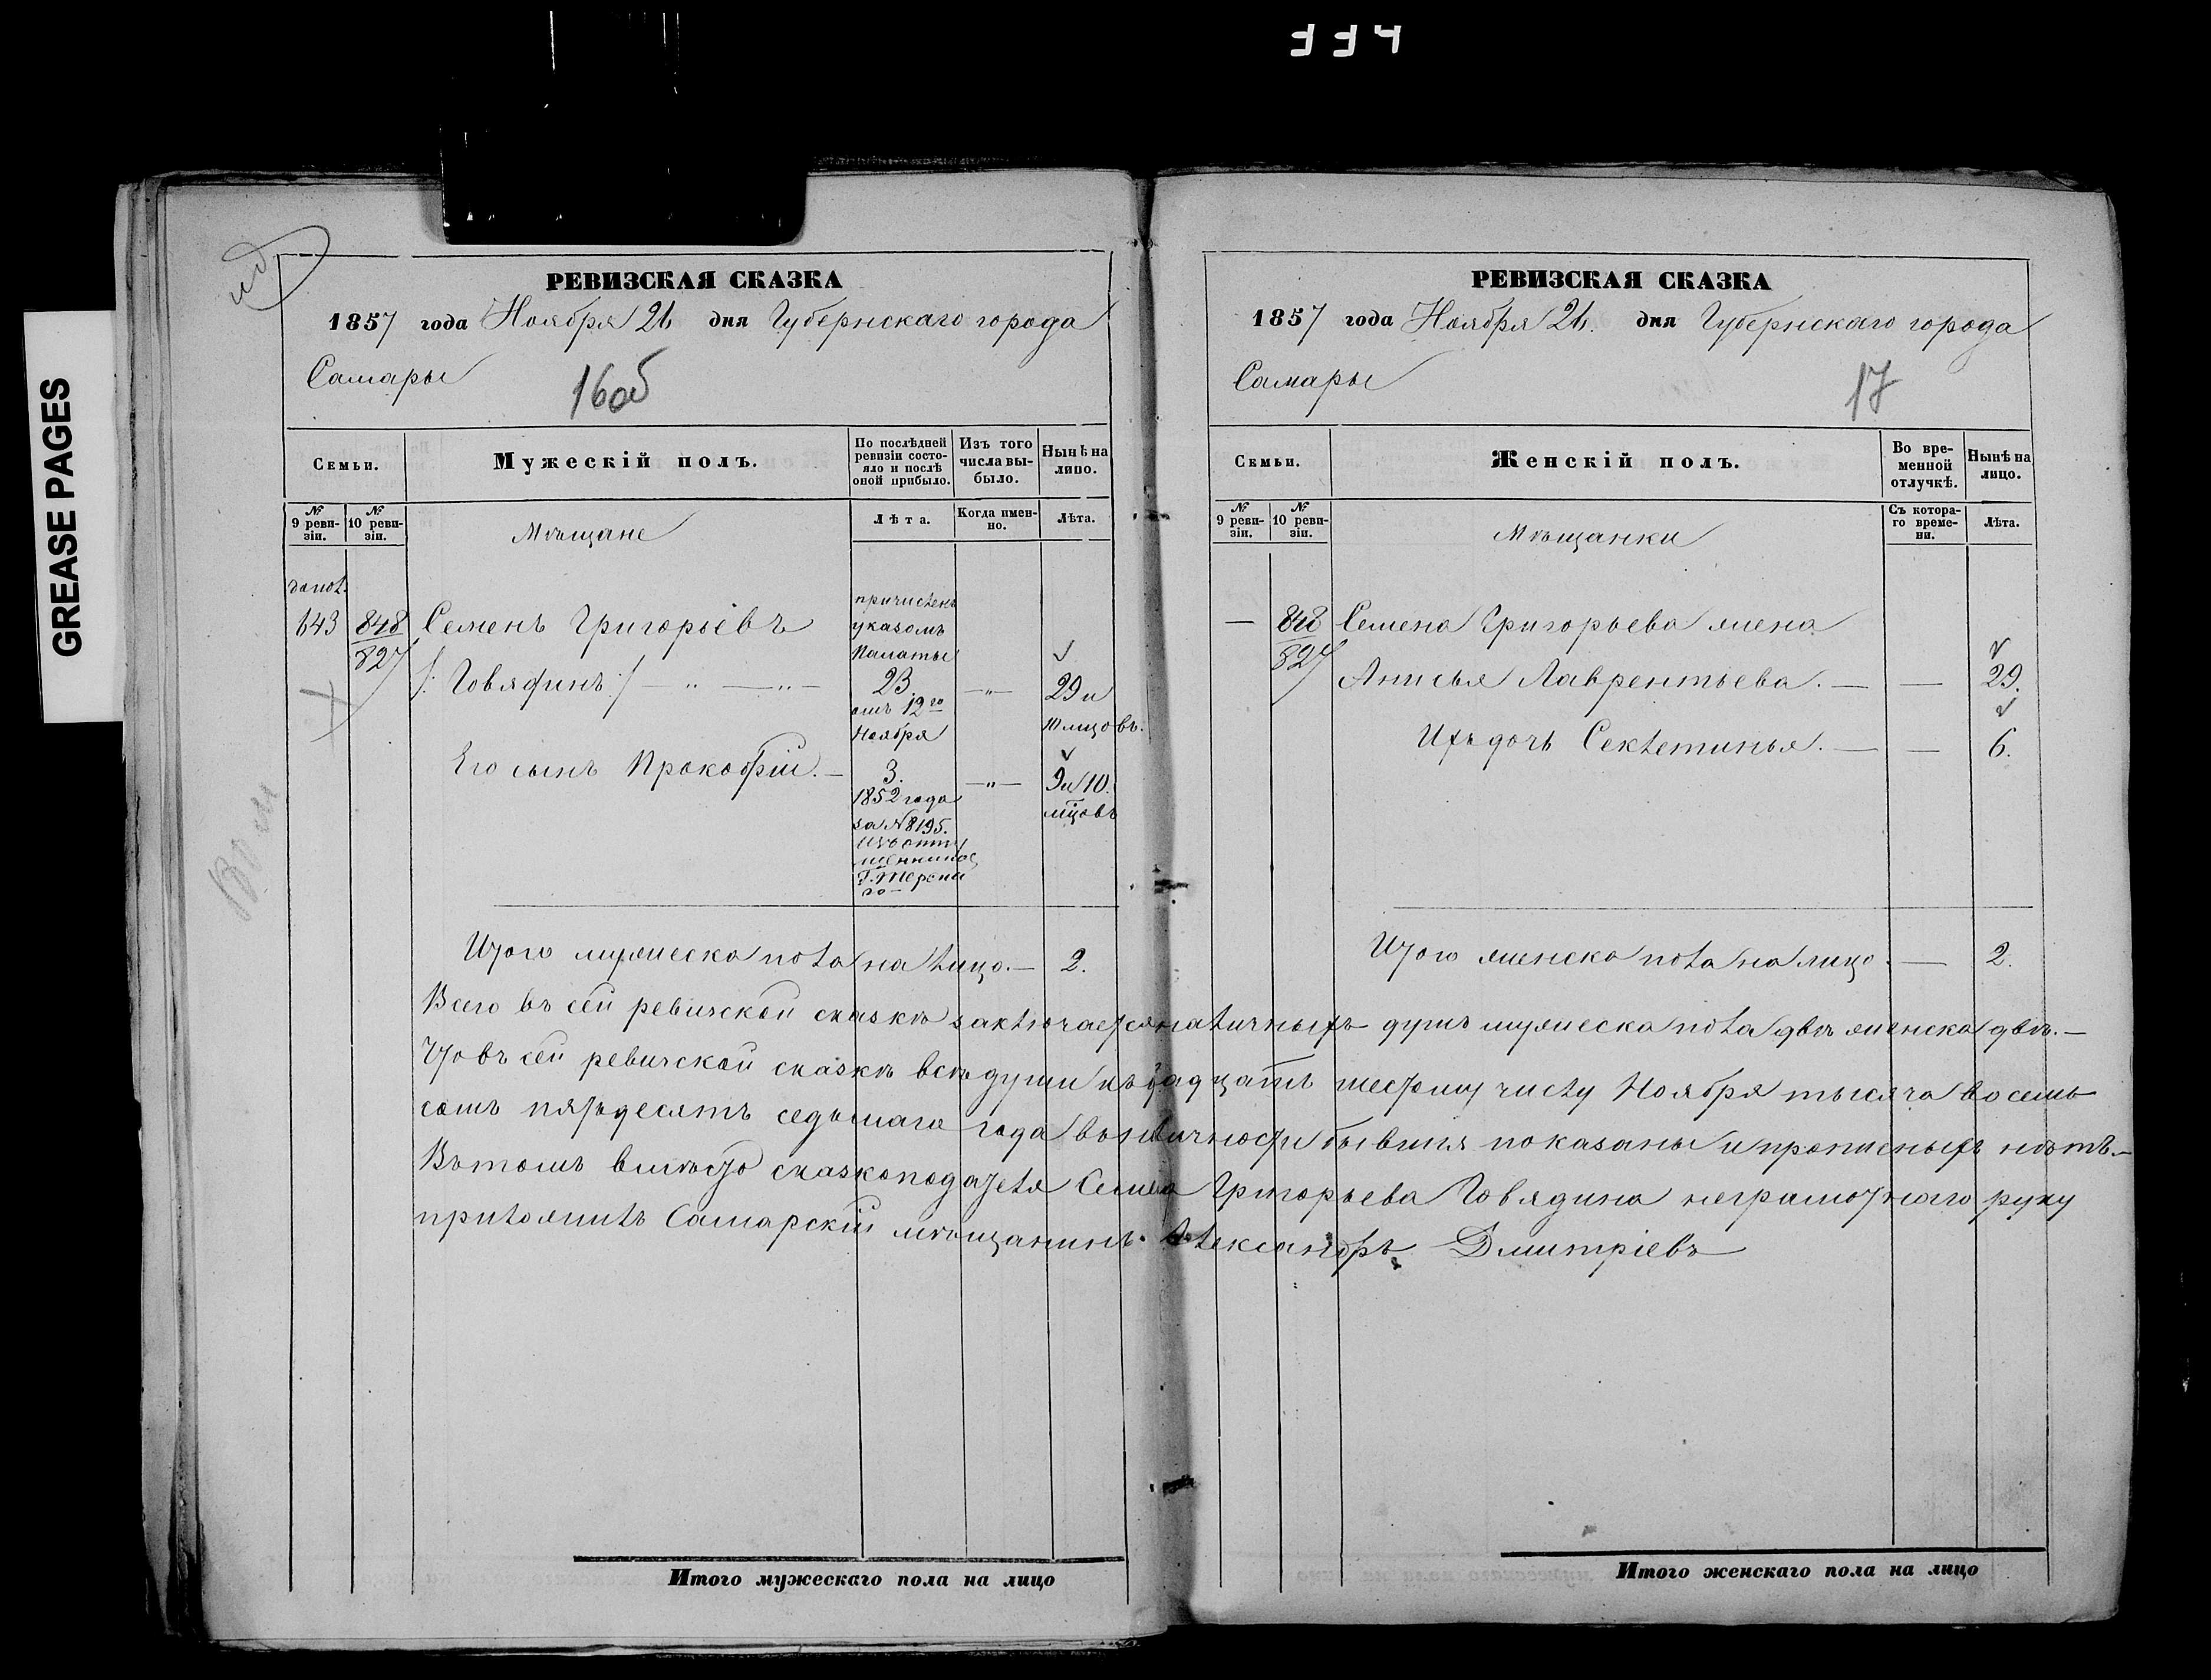 GREASE PAGES
РЕВИЗСКАЯ СКАЗКА
1857 года Ноября 26 дня Губернскаго города
Самары
16об
Семьи.
Мужескій полъ.
По послѣдней ревизіи состояло и послѣ оной прибыло.
Изъ того числа выбыло.
Нынѣ на лицо.
№ 9 ревизіи.
№ 10 ревизіи.
Мѣщане
Лѣта.
Когда именно.
Лѣта.
допол.
643
848
827
Семенъ Григорьевъ
/: Говядинъ :/ — " — " —
причисленъ
указомъ
Палаты
23.
отъ 12го
Ноября
— " —
29 и
10 мцовъ.
Его сынъ Прокофій. —
3.
1852 года
за № 8195.
изъ отпу
щенник
Г. Терски
го —
— " —
9 и 10.
мцовъ
Итого мужеска пола на лицо. — 2.
РЕВИЗСКАЯ СКАЗКА
1857 года Ноября 26. дня Губернскаго города
Самары
17
Семьи.
Женскій полъ.
Во временной отлучкѣ.
Нынѣ на лицо.
№ 9 ревизіи.
№ 10 ревизіи.
Мѣщанки
Съ котораго времени.
Лѣта.
—
848
827
Семена Григорьева жена
Анисья Лаврентьева. — — 29.
Ихъ дочь Секлетинья. — — 6.
Итого женска пола на лицо. — 2.
Всего въ сей ревизской сказкѣ заключается наличныхъ душъ мужеска пола двѣ женска двѣ. —
Что въ сей ревизской сказкѣ всѣ души къ двадцать шестому числу Ноября тысяча восемь
сотъ пятьдесятъ седьмаго года въ наличности бывшія показаны и прописныхъ нѣтъ. —
Въ томъ вмѣсто сказкоподателя Семена Григорьева Говядина неграмотнаго руку
приложилъ Самарскій мѣщанинъ Александръ Дмитріевъ
Итого мужескаго пола на лицо
Итого женскаго пола на лицо